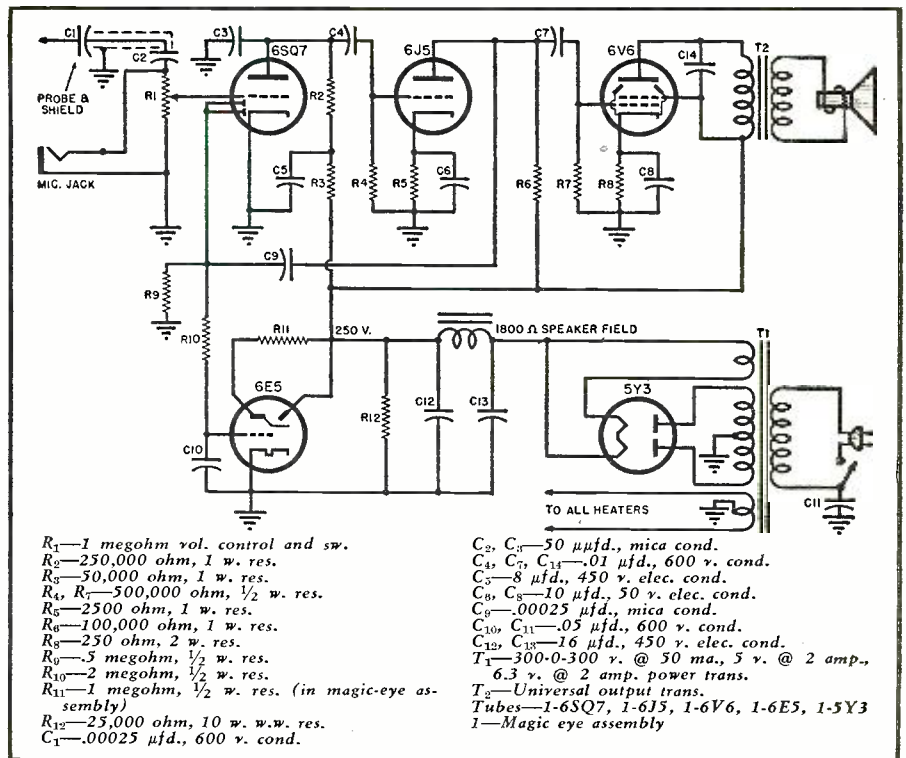 C1
C2
C3
6SQ7
C4
6J5
C7
6V6
C14
T2
PROBE &
SHIELD
R1
R2
MIC. JACK
C5
R3
R4
R5
C6
R6
R7
R8
C8
C9
R9
R10
R11
250 V.
1800 Ω SPEAKER FIELD
T1
6E5
5Y3
R12
C12
C13
C10
C11
TO ALL HEATERS
R₁—1 megohm vol. control and sw.
R₂—250,000 ohm, 1 w. res.
R₃—50,000 ohm, 1 w. res.
R₄, R₇—500,000 ohm, ½ w. res.
R₅—2500 ohm, 1 w. res.
R₆—100,000 ohm, 1 w. res.
R₈—250 ohm, 2 w. res.
R₉—.5 megohm, ½ w. res.
R₁₀—2 megohm, ½ w. res.
R₁₁—1 megohm, ½ w. res. (in magic-eye as-
sembly)
R₁₂—25,000 ohm, 10 w. w.w. res.
C₁—.00025 μfd., 600 v. cond.
C₂, C₃—50 μμfd., mica cond.
C₄, C₇, C₁₄—.01 μfd., 600 v. cond.
C₅—8 μfd., 450 v. elec. cond.
C₆, C₈—10 μfd., 50 v. elec. cond.
C₉—.00025 μfd., mica cond.
C₁₀, C₁₁—.05 μfd., 600 v. cond.
C₁₂, C₁₃—16 μfd., 450 v. elec. cond.
T₁—300-0-300 v. @ 50 ma., 5 v. @ 2 amp.,
6.3 v. @ 2 amp. power trans.
T₂—Universal output trans.
Tubes—1-6SQ7, 1-6J5, 1-6V6, 1-6E5, 1-5Y3
1—Magic eye assembly